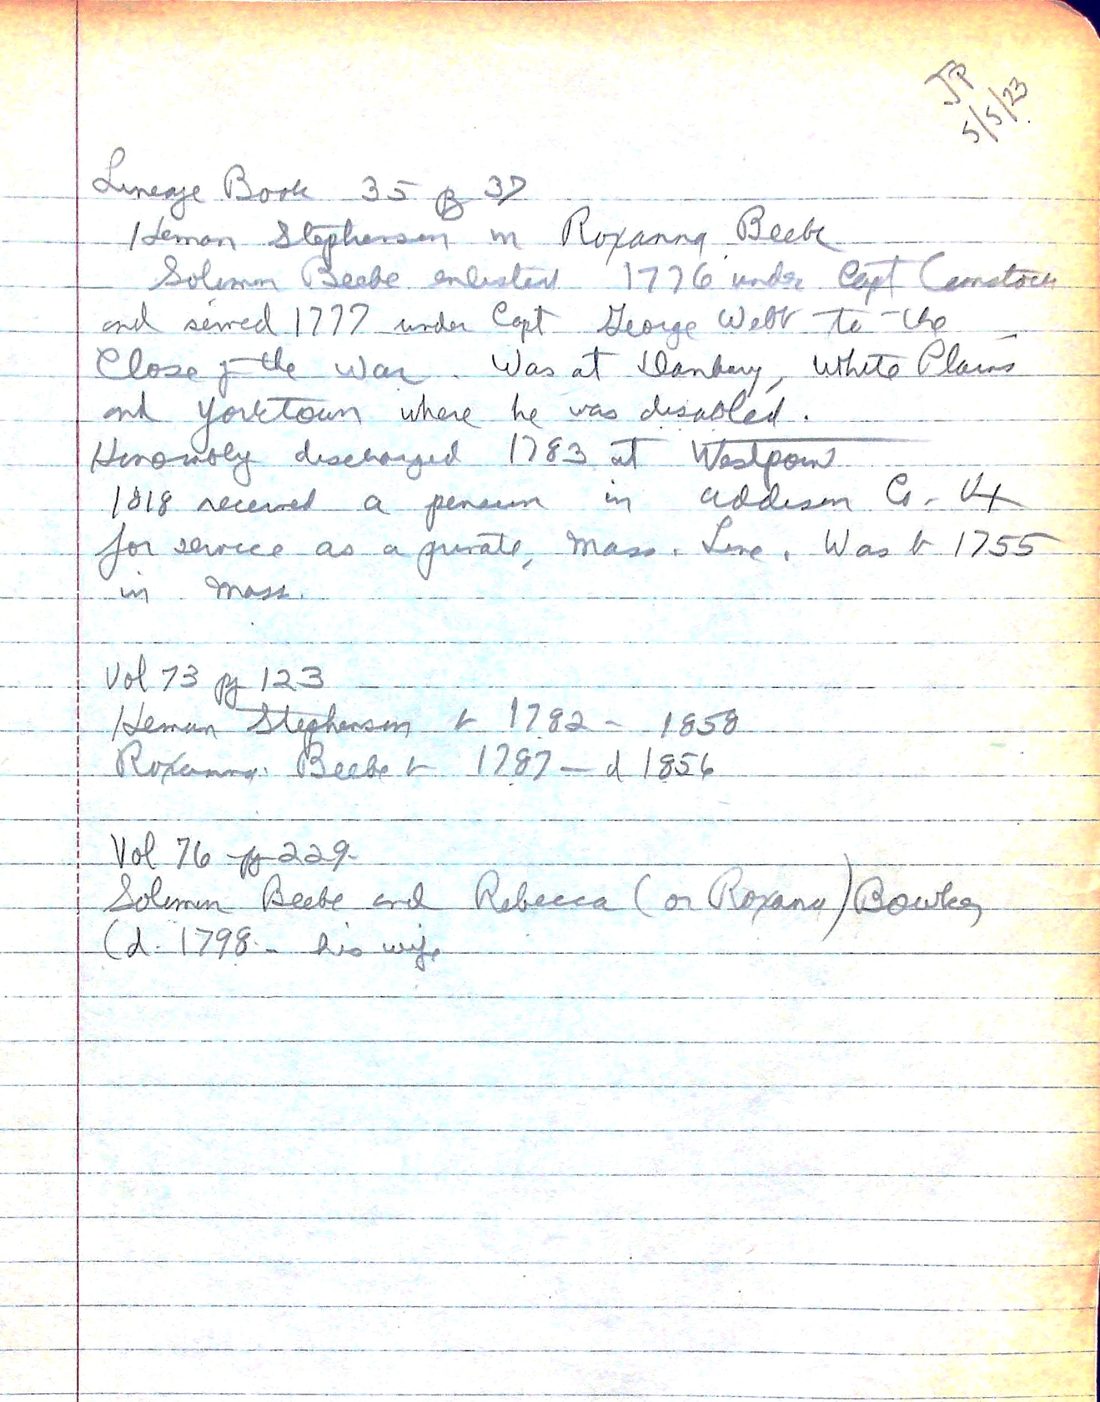 JP
5/5/23
Lineage Book 35 pg 37
Heman Stephenson m Roxanna Beebe
Solomon Beebe enlisted 1776 under Capt Comstock
and served 1777 under Capt George Webb to the
Close of the War. Was at Danbury, White Plains
and Yorktown where he was disabled.
Honorably discharged 1783 at Westpoint
1818 received a pension in Addison Co. Vt
for service as a private, Mass. Line. Was b 1755
in Mass.
Vol 73 pg 123
Heman Stephenson b 1782 - 1858
Roxanna Beebe b 1787 - d 1856
Vol 76 pg 229
Solomon Beebe and Rebecca (or Roxana) Bowker
(d. 1798 - his wife